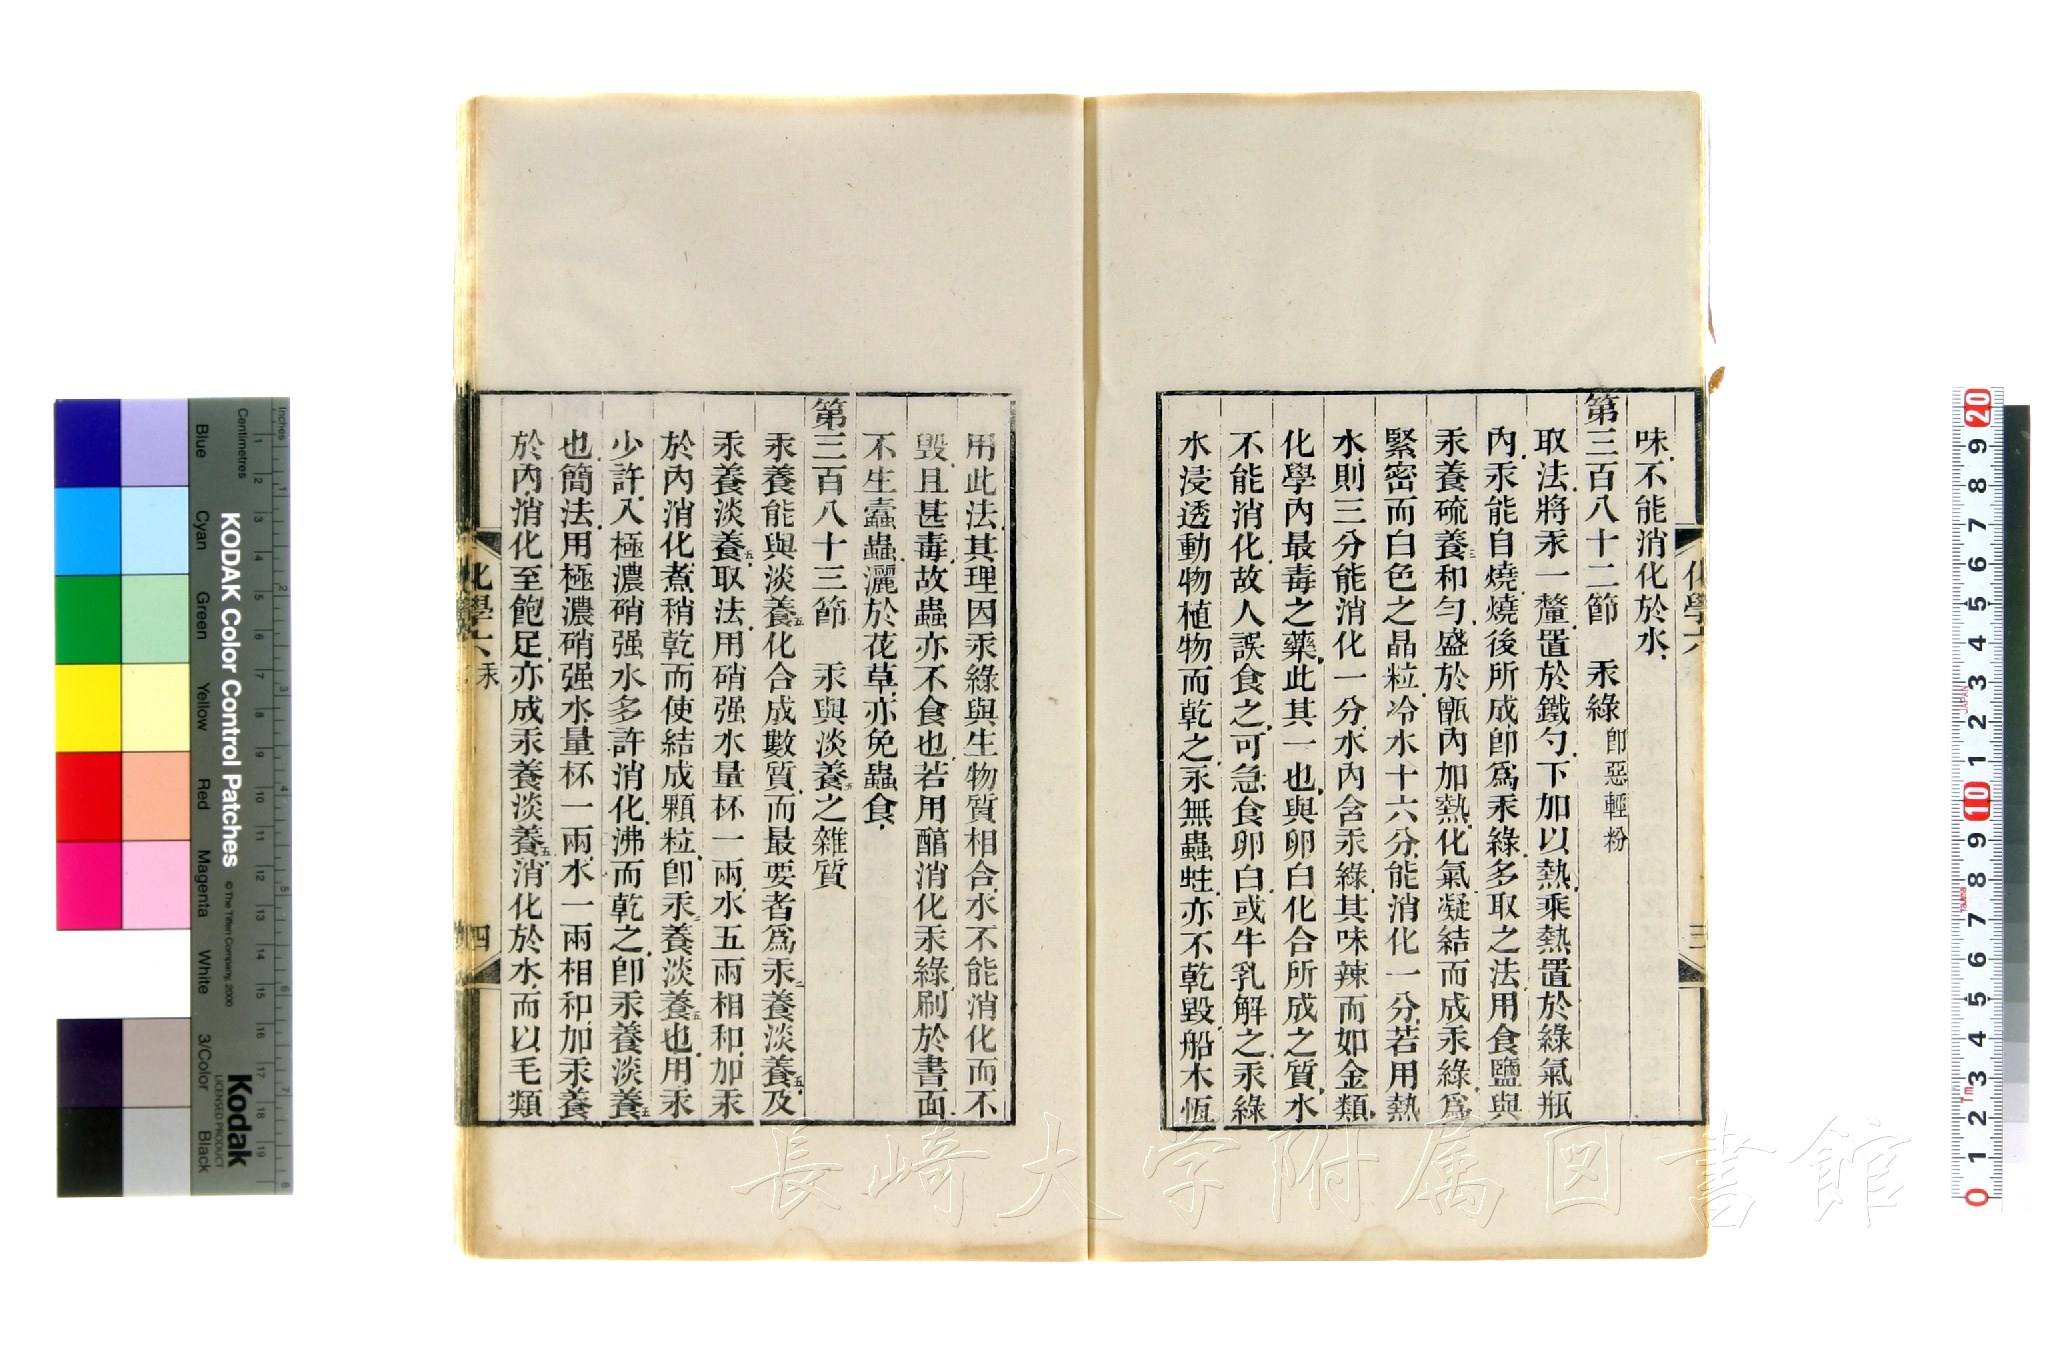 味、不能消化於水、
第三百八十二節　汞綠 卽惡輕粉
取法、將汞一釐、置於鐵勺、下加以熱、乘熱置於綠氣瓶
內、汞能自燒、燒後所成、卽爲汞綠、多取之法、用食鹽與
汞養硫養三和勻、盛於甑內加熱、化氣凝結而成汞綠、爲
緊密而白色之晶粒、冷水十六分、能消化一分、若用熱
水、則三分能消化一分、水內含汞綠、其味辣而如金類、
化學內最毒之藥、此其一也、與卵白化合所成之質、水
不能消化、故人誤食之、可急食卵白、或牛乳解之、汞綠
水浸透動物植物而乾之、永無蟲蛀、亦不乾毀、船木恆
化學六
三
用此法、其理因汞綠與生物質相合、水不能消化而不
毀、且甚毒、故蟲亦不食也、若用醕消化汞綠、刷於書面、
不生蠹蟲、灑於花草、亦免蟲食、
第三百八十三節　汞與淡養五之雜質
汞養能與淡養五化合成數質、而最要者、爲汞二養淡養五、及
汞養淡養五、取法、用硝强水量杯一兩、水五兩相和、加汞
於內消化、煮稍乾而使結成顆粒、卽汞二養淡養五也、用汞
少許、入極濃硝强水多許消化、沸而乾之、卽汞養淡養五
也、簡法、用極濃硝强水、量杯一兩、水一兩相和、加汞養
於內、消化至飽足、亦成汞養淡養五、消化於水、而以毛類
化學六 汞
四
Inches
Centimetres
KODAK Color Control Patches
© The Tiffen Company, 2000
Kodak
LICENSED PRODUCT
Blue
Cyan
Green
Yellow
Red
Magenta
White
3/Color
Black
長崎大学附属図書館
JAPAN